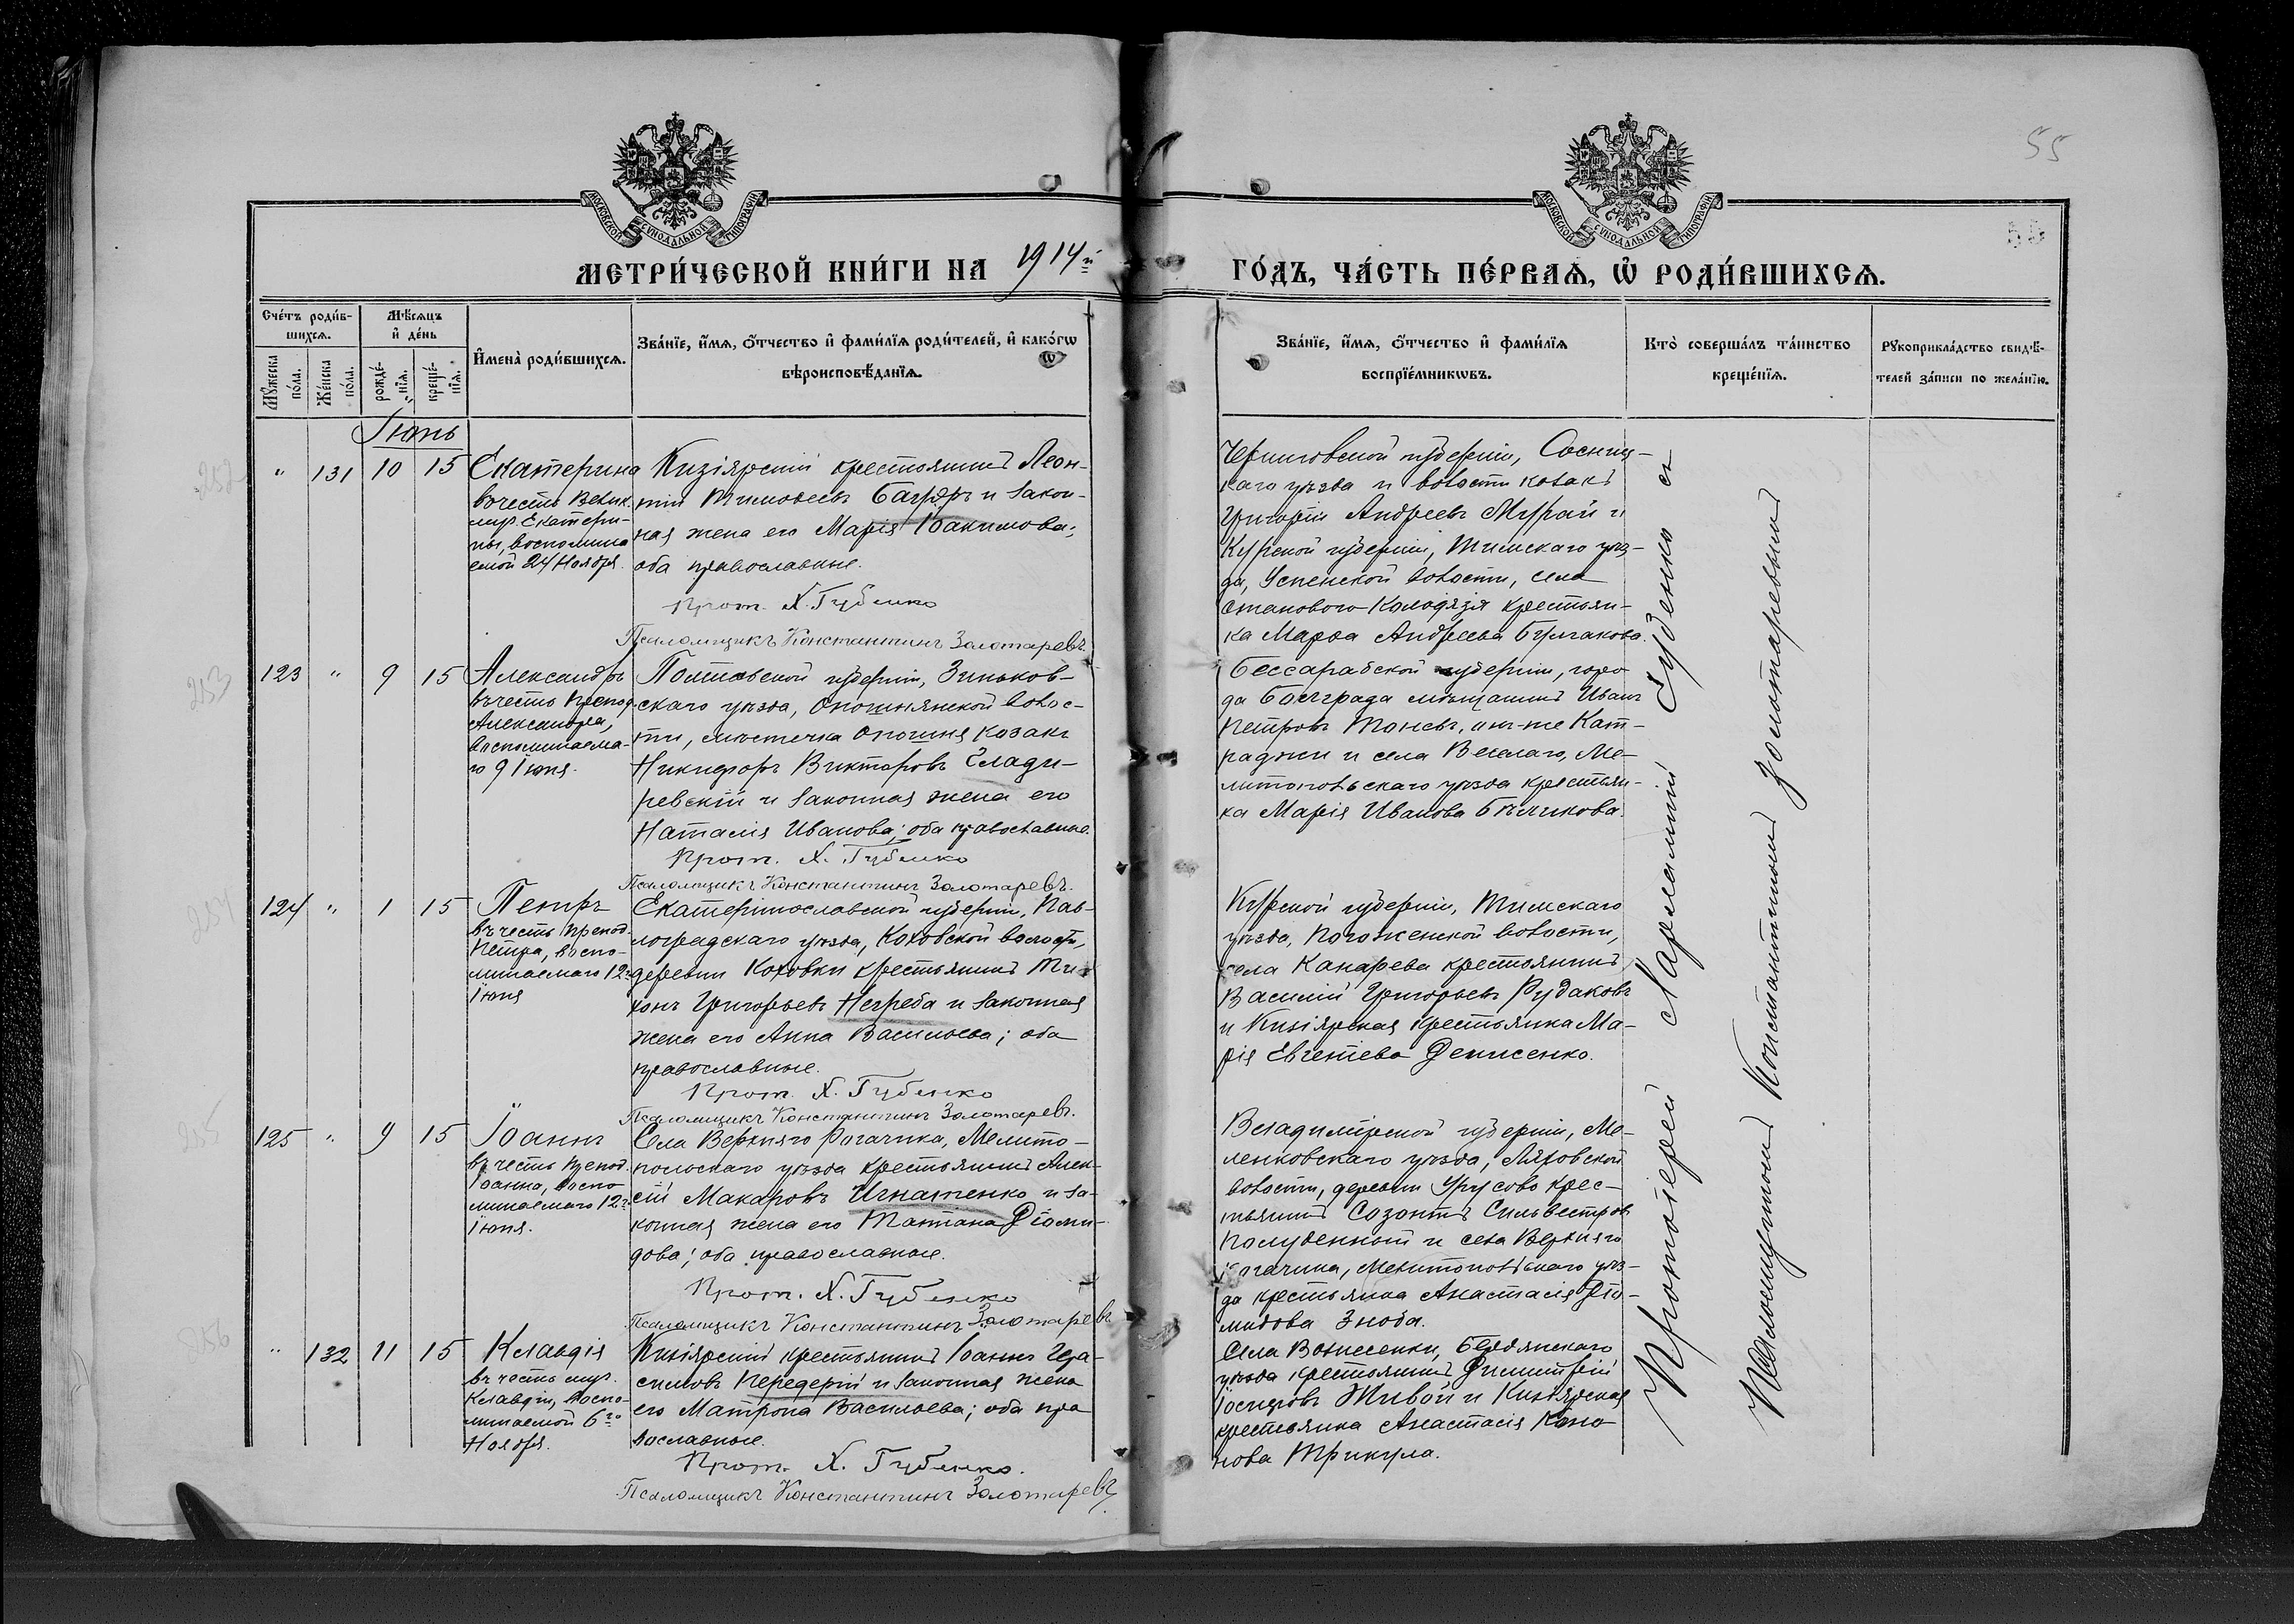 55
МОСКОВСКОЙ СѴНОДАЛЬНОЙ ТИПОГРАФІИ
МОСКОВСКОЙ СѴНОДАЛЬНОЙ ТИПОГРАФІИ
МЕТРИ́ЧЕСКОЙ КНИ́ГИ НА 1914й
ГО́ДЪ, ЧА́СТЬ ПЕ́РВАѦ, Ѡ҆ РОДИ́ВШИХСѦ.
55
Сче́тъ роди́в-
шихсѧ.
Мѣ́сѧцъ
и҆ де́нь
Мꙋ́жеска
по́ла.
Же́нска
по́ла.
рожде́-
нїѧ.
креще́-
нїѧ.
И҆мена̀ роди́вшихсѧ.
Зва́нїе, и҆́мѧ, ѻ҆́тчество и҆ фами́лїѧ роди́телей, и҆ како́гѡ
вѣроисповѣ́данїѧ.
Зва́нїе, и҆́мѧ, ѻ҆́тчество и҆ фами́лїѧ
воспрїе́мникѡвъ.
Кто̀ соверша́лъ та́инство
креще́нїѧ.
Рꙋкоприкла́дство свидѣ́-
телей за́писи по жела́нїю.
Іюнь
252
" 131 10 15
Екатерина
въ честь Велик.
муч. Екатери-
ны, воспомина
емой 24 Ноября.
Кизіярскій крестьянинъ Леон-
тій Тимоѳеевъ Багдръ и закон-
ная жена его Марія Іоакимова;
оба православные.
Прот. Х. Губенко
Псаломщикъ Константинъ Золотаревъ.
Черниговской губерніи, Сосниц-
каго уѣзда и волости козакъ
Григорій Андреевъ Мурай и
Курской губерніи, Тимскаго уѣз-
да, Успенской волости, села
Станового Колодязя крестьян-
ка Марѳа Андреева Булгакова.
253
123 " 9 15
Александръ
въ честь препод.
Александра,
воспоминаема-
го 9 Іюня.
Полтавской губерніи, Зиньков-
скаго уѣзда, Опошнянской волос-
ти, мѣстечка Опошня козакъ
Никифоръ Викторовъ Глади-
ревскій и законная жена его
Наталія Иванова; оба православные.
Прот. Х. Губенко
Псаломщикъ Константинъ Золотаревъ.
Бессарабской губерніи, горо
да Болграда мѣщанинъ Иванъ
Петровъ Тоневъ, онъ-же Кат-
раджи и села Веселаго, Ме-
литопольскаго уѣзда крестьян-
ка Марія Иванова Бѣликова.
254
124 " 1 15
Петръ
въ честь препод.
Петра, воспо-
минаемаго 12го
Іюня
Екатеринославской губерніи, Пав-
лоградскаго уѣзда, Коховской волости,
деревни Коховки крестьянинъ Ти-
хонъ Григорьевъ Негреба и законная
жена его Анна Васильева; оба
православные.
Прот. Х. Губенко
Псаломщикъ Константинъ Золотаревъ.
Курской губерніи, Тимскаго
уѣзда, Погоженской волости,
села Канарева крестьянинъ
Василій Григорьевъ Рудаковъ
и Кизіярская крестьянка Ма-
рія Евгеніева Денисенко.
255
125 " 9 15
Іоаннъ
въ честь препод.
Іоанна, воспо
минаемаго 12го
Іюня.
Села Верхняго Рогачика, Мелито-
польскаго уѣзда крестьянинъ Алек-
сій Макаровъ Игнатенко и за-
конная жена его Татіана Діоми-
дова; оба православные.
Прот. Х. Губенко
Псаломщикъ Константинъ Золотаревъ
Владимірской губерніи, Ме-
ленковскаго уѣзда, Ляховской
волости, деревни Урусово крес-
тьянинъ Созонтъ Сильвестровъ
Полуденный и села Верхняго
Рогачика, Мелитопольскаго уѣз-
да крестьянка Анастасія Діо-
мидова Зноба.
256
" 132 11 15
Клавдія
въ честь муч.
Клавдіи, воспо-
минаемой 6го
Ноября.
Кизіярскій крестьянинъ Іоаннъ Гера-
симовъ Передерій и законная жена
его Матрона Васильева; оба пра
вославные.
Прот. Х. Губенко.
Псаломщикъ Константинъ Золотаревъ.
Села Вознесенки, Бердянскаго
уѣзда крестьянинъ Димитрій
Іосифовъ Живой и Кизіярская
крестьянка Анастасія Коно
нова Трикула.
Протоіерей Харлампій Губенко съ
Псаломщикомъ Константиномъ Золотаревымъ